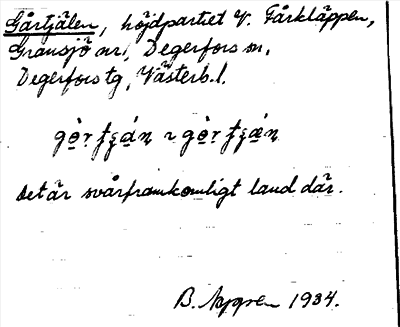 Gårtjälen, höjdpartiet V. Fårkläppen,
Gransjö avr., Degerfors sn,
Degerfors tg, Västerb.l.
Det är svårframkomligt land där.
B. Nygren 1934.